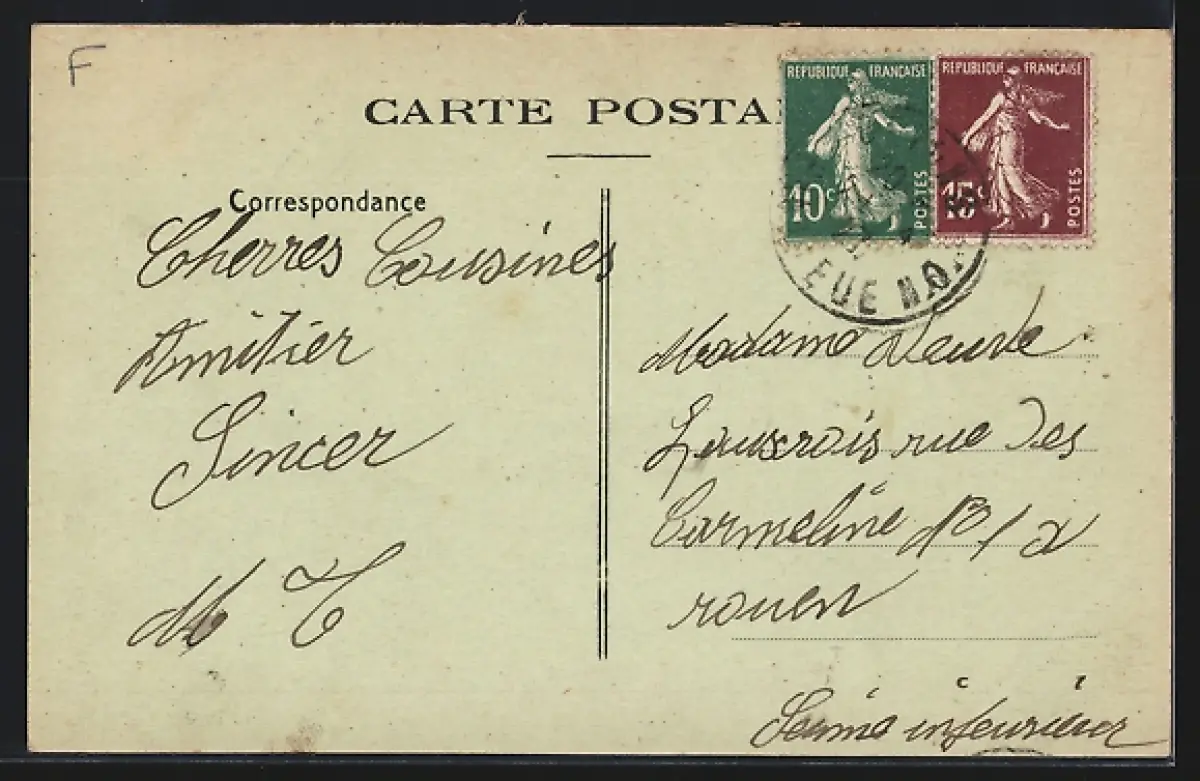 F
CARTE POSTA
REPUBLIQUE FRANÇAISE
10c
POSTES
REPUBLIQUE FRANÇAISE
15c
POSTES
EUE NO
Correspondance
Cherres Cousines
Amitier
Sincer
M C
Madame
rue Des
Carmeline
rouen
Seine inferieur